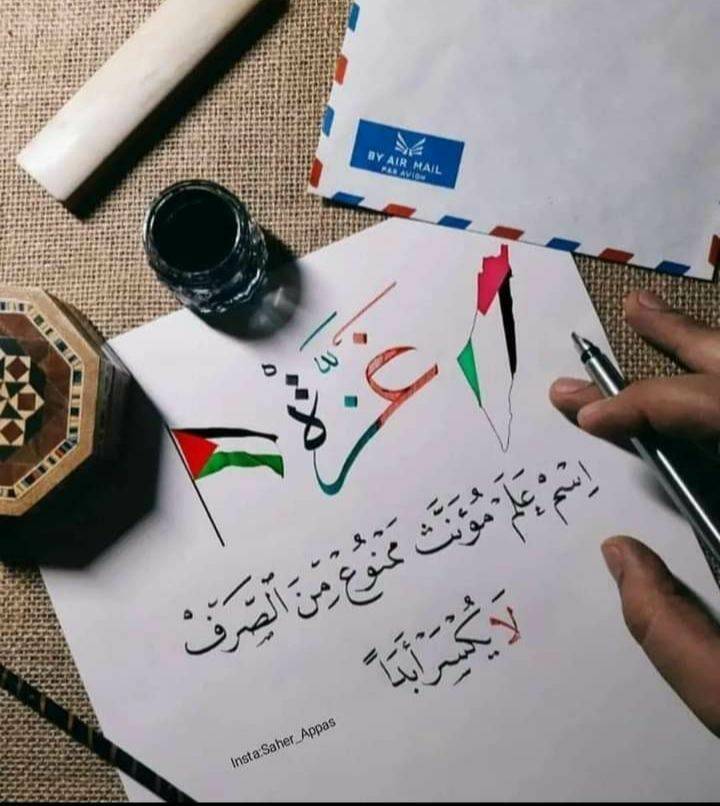 BY AIR MAIL
PAR AVION
غَزَّةْ
اِسْمْ عَلَمْ مُؤَنَّث مَمْنُوْعْ مِنَ الصَّرفْ
لَا يُكْسَرْ أَبَدَاً
Insta:Saher_Appas